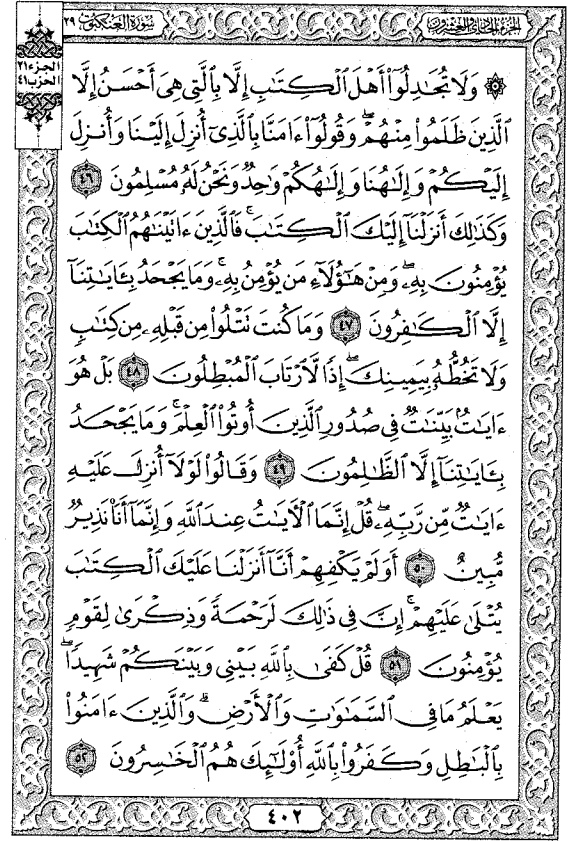 الجزء الحادي والعشرون
سورة العنكبوت ٢٩
الجزء ٢١
الحزب ٤١
۞ وَلَا تُجَٰدِلُوٓا۟ أَهْلَ ٱلْكِتَٰبِ إِلَّا بِٱلَّتِى هِىَ أَحْسَنُ إِلَّا
ٱلَّذِينَ ظَلَمُوا۟ مِنْهُمْ ۖ وَقُولُوٓا۟ ءَامَنَّا بِٱلَّذِىٓ أُنزِلَ إِلَيْنَا وَأُنزِلَ
إِلَيْكُمْ وَإِلَٰهُنَا وَإِلَٰهُكُمْ وَٰحِدٌ وَنَحْنُ لَهُۥ مُسْلِمُونَ ٤٦
وَكَذَٰلِكَ أَنزَلْنَآ إِلَيْكَ ٱلْكِتَٰبَ ۚ فَٱلَّذِينَ ءَاتَيْنَٰهُمُ ٱلْكِتَٰبَ
يُؤْمِنُونَ بِهِۦ ۖ وَمِنْ هَٰٓؤُلَآءِ مَن يُؤْمِنُ بِهِۦ ۚ وَمَا يَجْحَدُ بِـَٔايَٰتِنَآ
إِلَّا ٱلْكَٰفِرُونَ ٤٧ وَمَا كُنتَ تَتْلُوا۟ مِن قَبْلِهِۦ مِن كِتَٰبٍ
وَلَا تَخُطُّهُۥ بِيَمِينِكَ ۖ إِذًا لَّٱرْتَابَ ٱلْمُبْطِلُونَ ٤٨ بَلْ هُوَ
ءَايَٰتٌۢ بَيِّنَٰتٌ فِى صُدُورِ ٱلَّذِينَ أُوتُوا۟ ٱلْعِلْمَ ۚ وَمَا يَجْحَدُ
بِـَٔايَٰتِنَآ إِلَّا ٱلظَّٰلِمُونَ ٤٩ وَقَالُوا۟ لَوْلَآ أُنزِلَ عَلَيْهِ
ءَايَٰتٌ مِّن رَّبِّهِۦ ۖ قُلْ إِنَّمَا ٱلْءَايَٰتُ عِندَ ٱللَّهِ وَإِنَّمَآ أَنَا۠ نَذِيرٌ
مُّبِينٌ ٥٠ أَوَلَمْ يَكْفِهِمْ أَنَّآ أَنزَلْنَا عَلَيْكَ ٱلْكِتَٰبَ
يُتْلَىٰ عَلَيْهِمْ ۚ إِنَّ فِى ذَٰلِكَ لَرَحْمَةً وَذِكْرَىٰ لِقَوْمٍ
يُؤْمِنُونَ ٥١ قُلْ كَفَىٰ بِٱللَّهِ بَيْنِى وَبَيْنَكُمْ شَهِيدًا ۖ
يَعْلَمُ مَا فِى ٱلسَّمَٰوَٰتِ وَٱلْأَرْضِ ۗ وَٱلَّذِينَ ءَامَنُوا۟
بِٱلْبَٰطِلِ وَكَفَرُوا۟ بِٱللَّهِ أُو۟لَٰٓئِكَ هُمُ ٱلْخَٰسِرُونَ ٥٢
٤٠٢